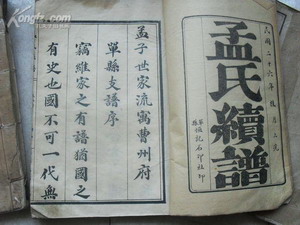 民國二十六年
孟氏續譜
單縣
石印社印
孟子世家流寓曹州府
單縣支譜序
竊維家之有譜猶國之
有史也國不可一代無